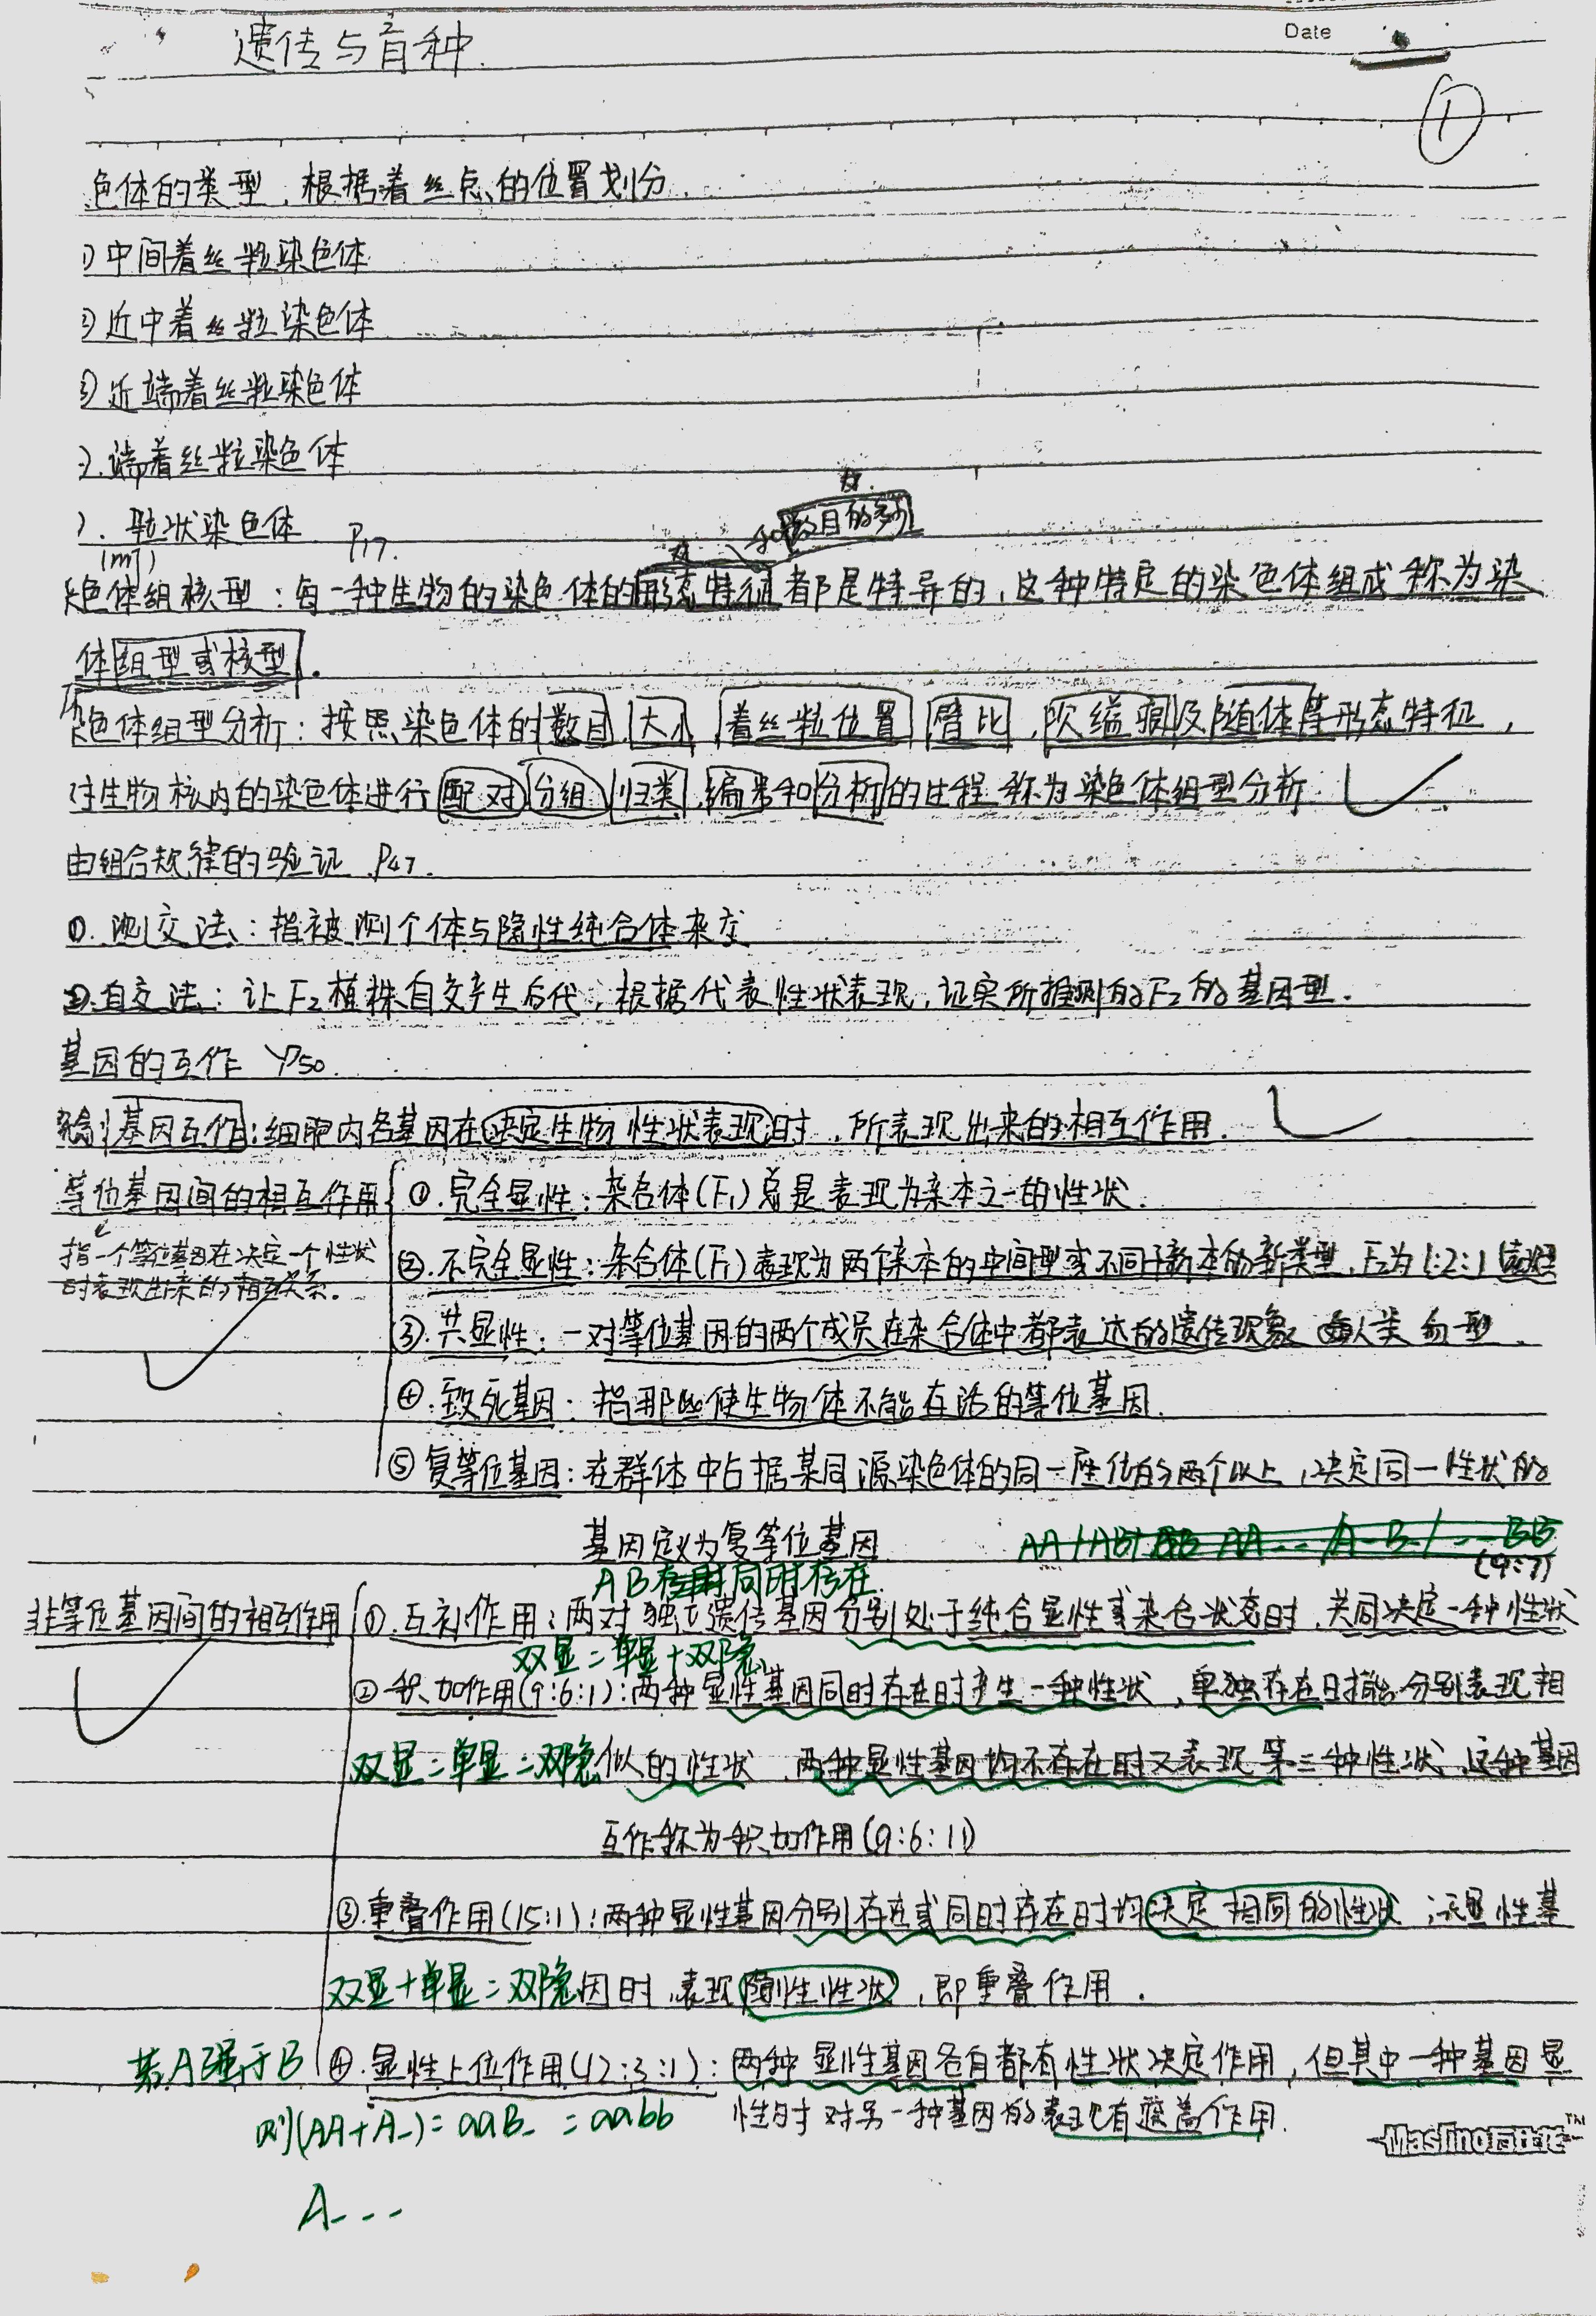 遗传与育种.
Date
①
色体的类型，根据着丝点的位置划分.
1)中间着丝粒染色体
2)近中着丝粒染色体
3)近端着丝粒染色体
端着丝粒染色体
粒状染色体 P17.
(m7)
和数目的
色体组核型：每一种生物的染色体的形态特征都是特异的，这种特定的染色体组成称为染
体组型或核型.
色体组型分析：按照染色体的数目 大小 着丝粒位置 臂比，次缢痕及随体等形态特征，
对生物核内的染色体进行配对 分组 归类，编号和分析的过程称为染色体组型分析
由组合规律的验证 P47.
①.测交法：指被测个体与隐性纯合体杂交
②.自交法：让F2植株自交产生后代，根据代表性状表现，证实所推测的F2的基因型.
基因的互作 P50.
基因互作：细胞内各基因在决定生物性状表现时，所表现出来的相互作用.
等位基因间的相互作用 ①.完全显性：杂合体(F1)总是表现为亲本之一的性状.
指一个等位基因在决定一个性状
时表现出来的相互关系.
②.不完全显性：杂合体(F1)表现为两个亲本的中间型或不同于亲本的新类型，F2为1:2:1
③.共显性：一对等位基因的两个成员在杂合体中都表达的遗传现象 人类 血型.
④.致死基因：指那些使生物体不能存活的等位基因.
⑤复等位基因：在群体中占据某同源染色体的同一座位的两个以上，决定同一性状的
基因定义为复等位基因
(9:7)
AB 同时存在.
非等位基因间的相互作用 ①.互补作用：两对独立遗传基因分别处于纯合显性或杂合状态时.共同决定一种性状
双显:单显+双隐
②积加作用(9:6:1)：两种显性基因同时存在时产生一种性状，单独存在时能分别表现相
双显:单显:双隐 似的性状 两种显性基因均不存在时又表现第三种性状，这种基因
互作称为积加作用(9:6:1)
③.重叠作用(15:1)：两种显性基因分别存在或同时存在时均决定相同的性状；无显性基
双显+单显:双隐 因时，表现隐性性状，即重叠作用.
若A强于B ④.显性上位作用(12:3:1)：两种显性基因各自都有性状决定作用，但其中一种基因显
则(AA+A_)=aaB_=aabb 性时对另一种基因的表现有遮盖作用.
A---